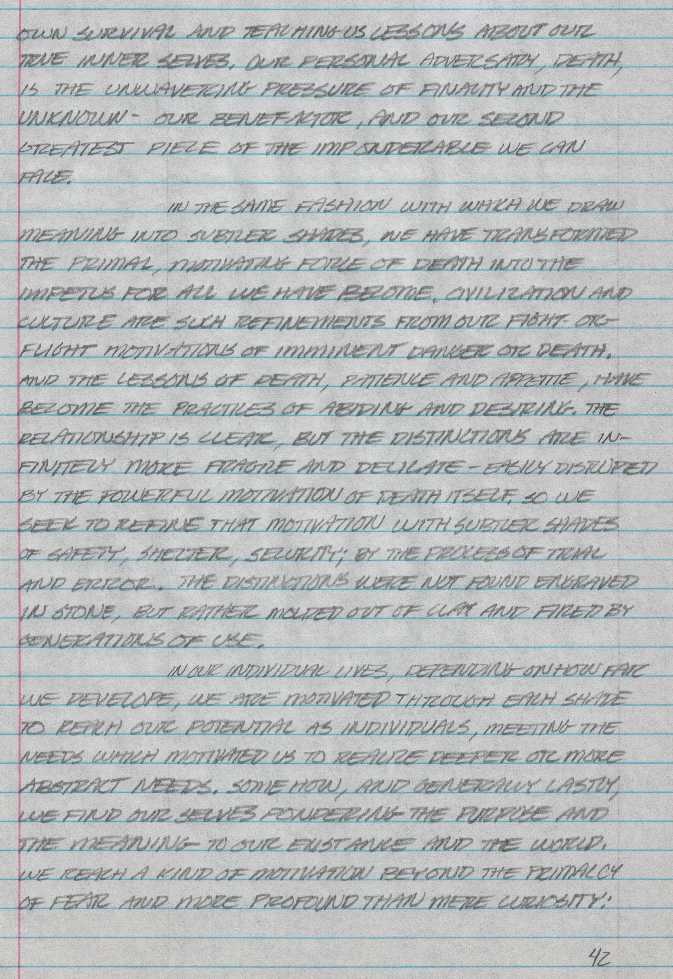 OWN SURVIVAL AND TEACHING US LESSONS ABOUT OUR
TRUE INNER SELVES. OUR PERSONAL ADVERSARY, DEATH,
IS THE UNWAVERING PRESSURE OF FINALITY AND THE
UNKNOWN - OUR BENEFACTOR, AND OUR SECOND
GREATEST PIECE OF THE IMPONDERABLE WE CAN
FACE.
IN THE SAME FASHION WITH WHICH WE DRAW
MEANING INTO SUBTLER SHADES, WE HAVE TRANSFORMED
THE PRIMAL, MOTIVATING FORCE OF DEATH INTO THE
IMPETUS FOR ALL WE HAVE BECOME. CIVILIZATION AND
CULTURE ARE SUCH REFINEMENTS FROM OUR FIGHT-OR-
FLIGHT MOTIVATIONS OF IMMINENT DANGER OR DEATH.
AND THE LESSONS OF DEATH, PATIENCE AND APPETITE, HAVE
BECOME THE PRACTICES OF ABIDING AND DESIRING. THE
RELATIONSHIP IS CLEAR, BUT THE DISTINCTIONS ARE IN-
FINITELY MORE FRAGILE AND DELICATE - EASILY DISRUPTED
BY THE POWERFUL MOTIVATION OF DEATH ITSELF. SO WE
SEEK TO REFINE THAT MOTIVATION WITH SUBTLER SHADES
OF SAFETY, SHELTER, SECURITY; BY THE PROCESS OF TRIAL
AND ERROR. THE DISTINCTIONS WERE NOT FOUND ENGRAVED
IN STONE, BUT RATHER MOLDED OUT OF CLAY AND FIRED BY
GENERATIONS OF USE.
IN OUR INDIVIDUAL LIVES, DEPENDING ON HOW FAR
WE DEVELOPE, WE ARE MOTIVATED THROUGH EACH SHADE
TO REACH OUR POTENTIAL AS INDIVIDUALS, MEETING THE
NEEDS WHICH MOTIVATED US TO REALIZE DEEPER OR MORE
ABSTRACT NEEDS. SOMEHOW, AND GENERALLY LASTLY,
WE FIND OUR SELVES PONDERING THE PURPOSE AND
THE MEANING TO OUR EXISTANCE AND THE WORLD.
WE REACH A KIND OF MOTIVATION BEYOND THE PRIMALCY
OF FEAR AND MORE PROFOUND THAN MERE CURIOSITY:
42